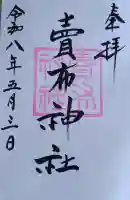 奉拝
賣布神社
令和八年五月三日